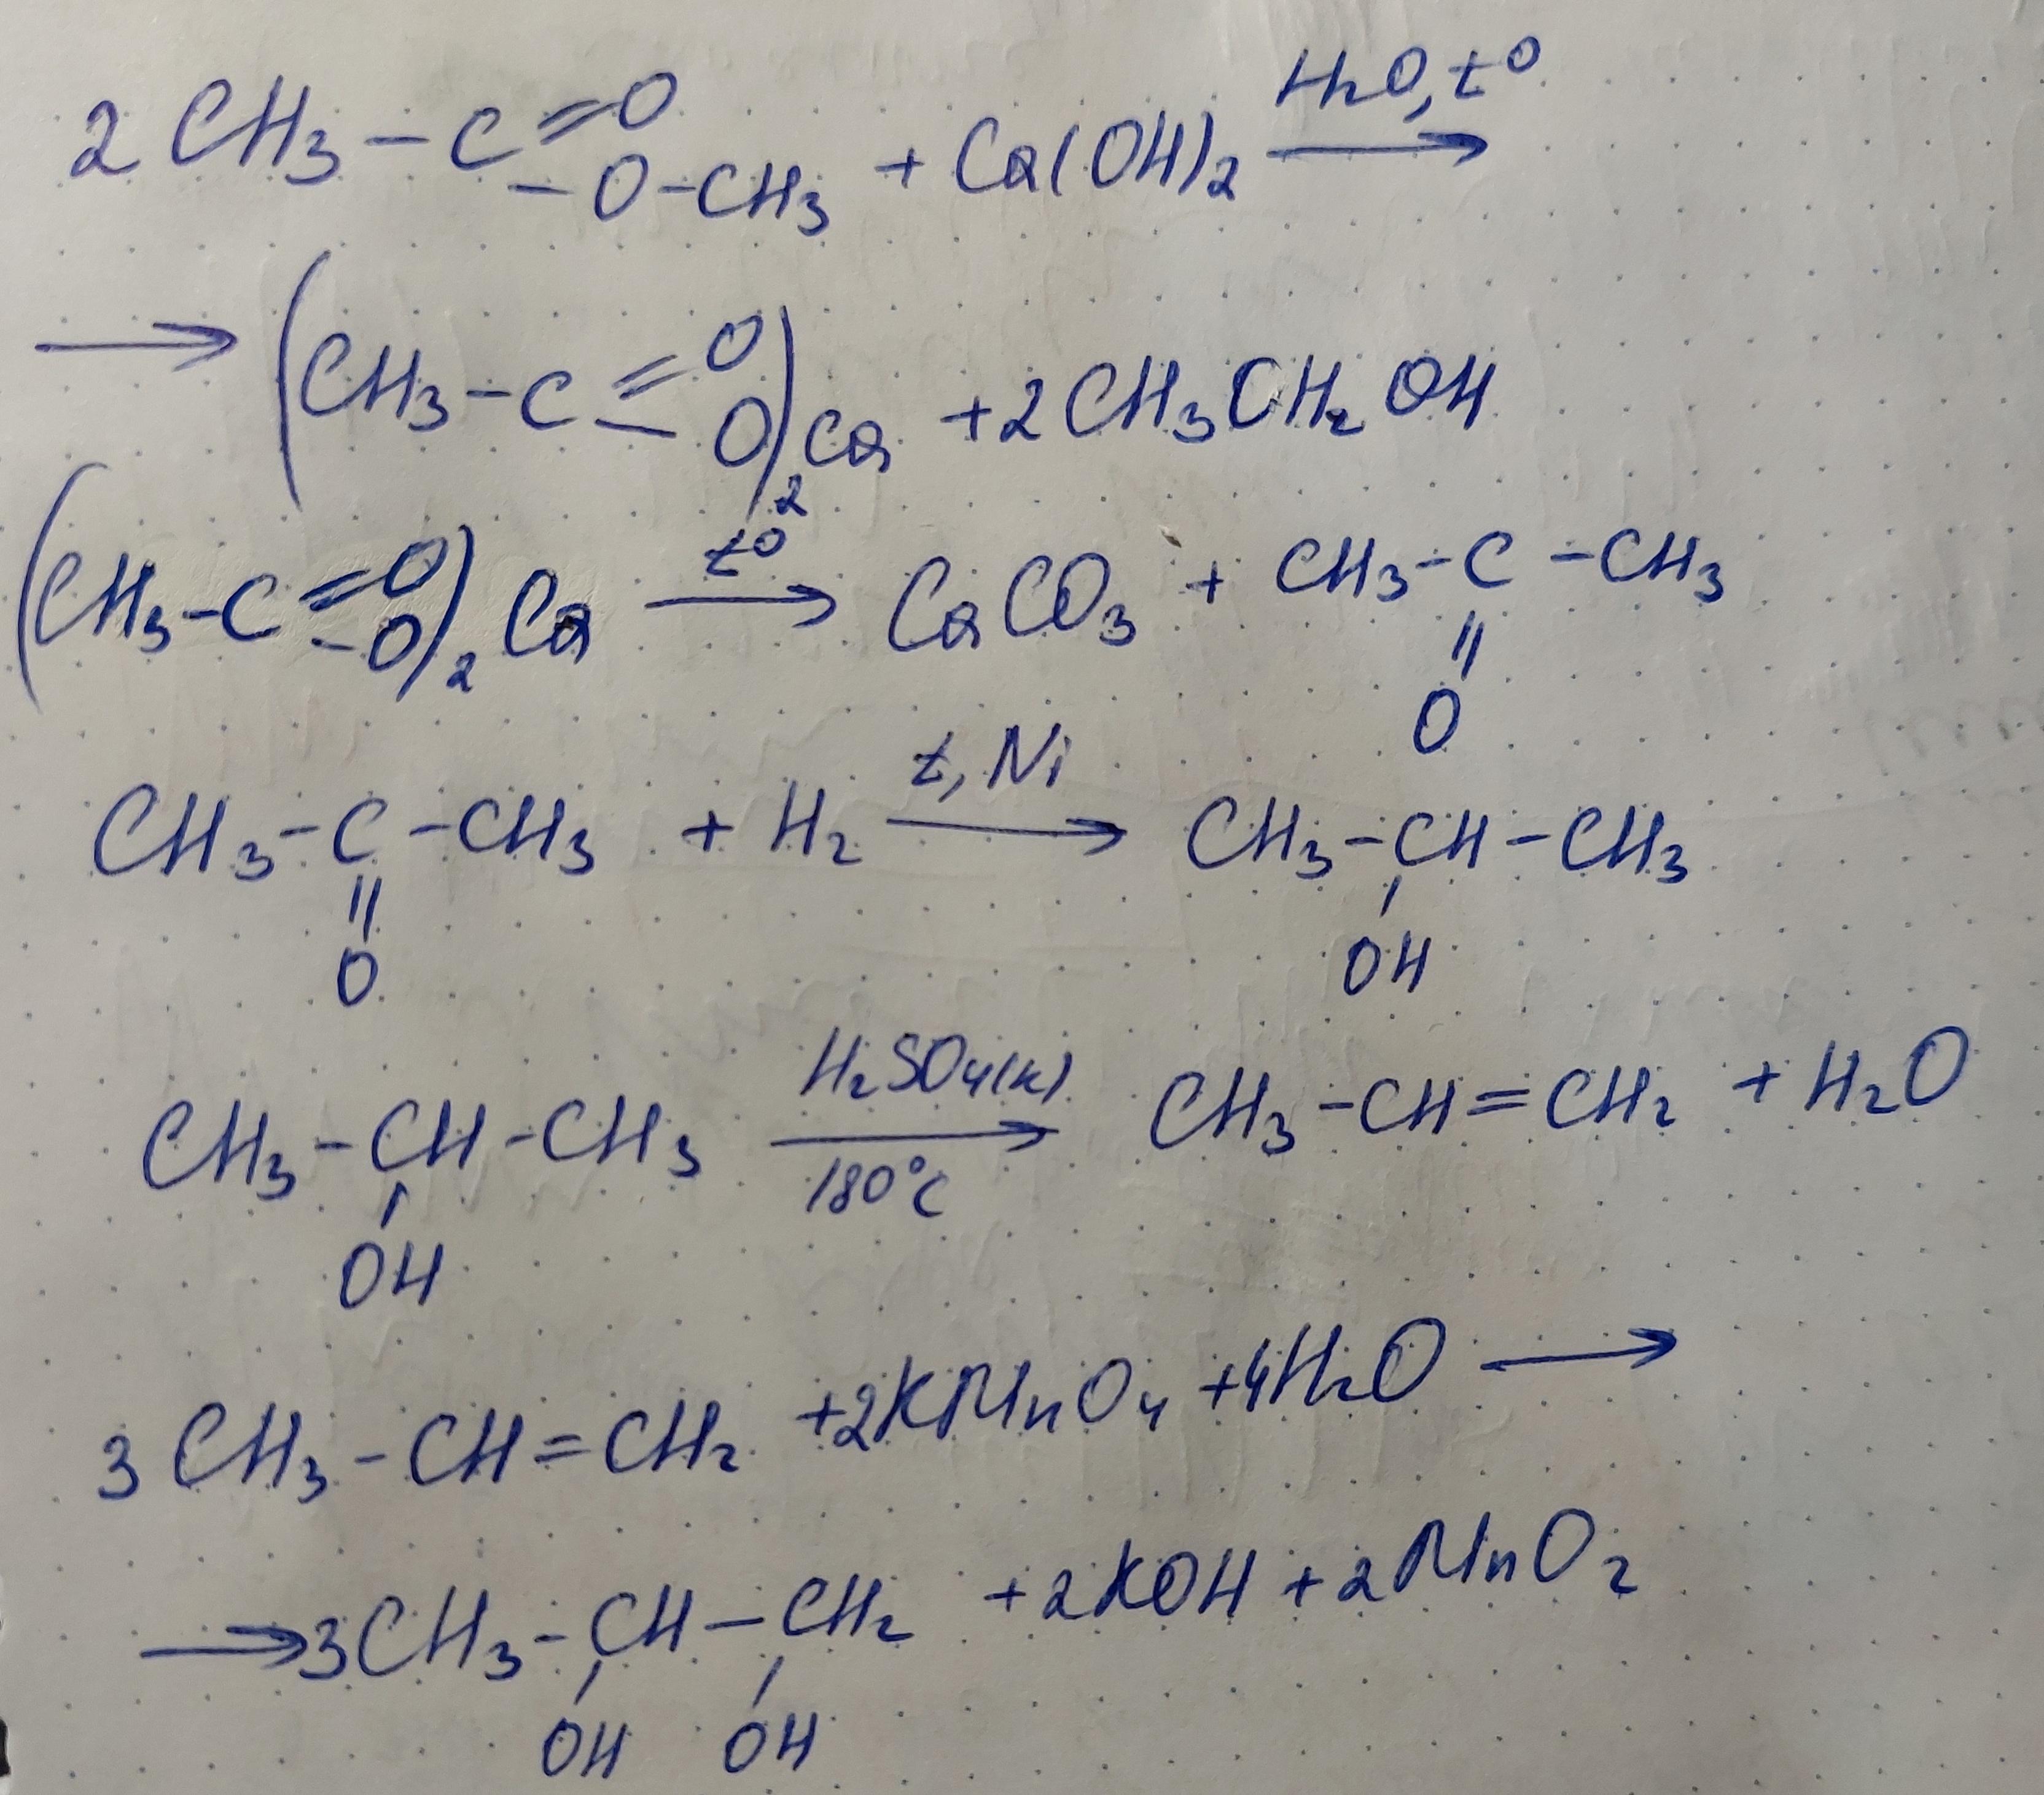 2CH₃-C=O -O-CH₃ + Ca(OH)₂ H₂O, t⁰ →
→ (CH₃-C=O -O)₂Ca + 2CH₃CH₂OH
(CH₃-C=O -O)₂Ca t⁰ → CaCO₃ + CH₃-C-CH₃
=O
CH₃-C-CH₃ + H₂ t, Ni → CH₃-CH-CH₃
=O OH
CH₃-CH-CH₃ H₂SO₄(к) → 180°C CH₃-CH=CH₂ + H₂O
OH
3CH₃-CH=CH₂ +2KMnO₄ +4H₂O →
→ 3CH₃-CH-CH₂ +2KOH +2MnO₂
OH OH